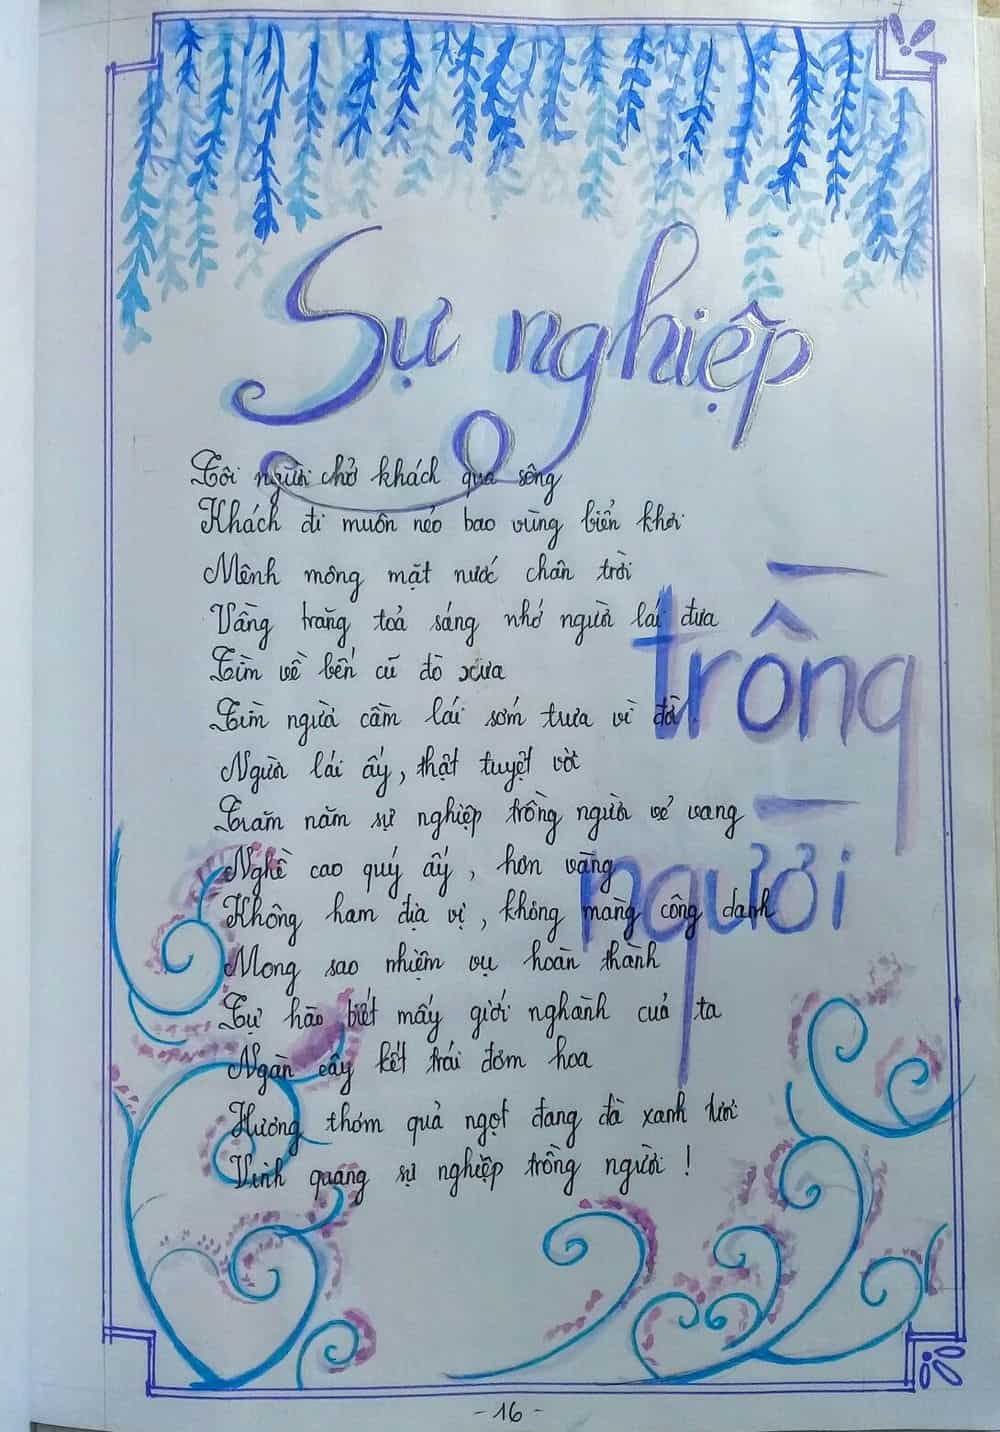 Sự nghiệp
trồng
người
Tôi người chở khách qua sông
Khách đi muôn nẻo bao vùng biển khơi
Mênh mông mặt nước chân trời
Vầng trăng toả sáng nhớ người lái đưa
Tìm về bến cũ đò xưa
Tìm người cầm lái sớm trưa vì đời
Người lái ấy, thật tuyệt vời
Trăm năm sự nghiệp trồng người vẻ vang
Nghề cao quý ấy, hơn vàng
Không ham địa vị, không màng công danh
Mong sao nhiệm vụ hoàn thành
Tự hào biết mấy giới nghành của ta
Ngàn cây kết trái đơm hoa
Hương thơm quả ngọt đang đà xanh tươi
Vinh quang sự nghiệp trồng người !
- 16 -